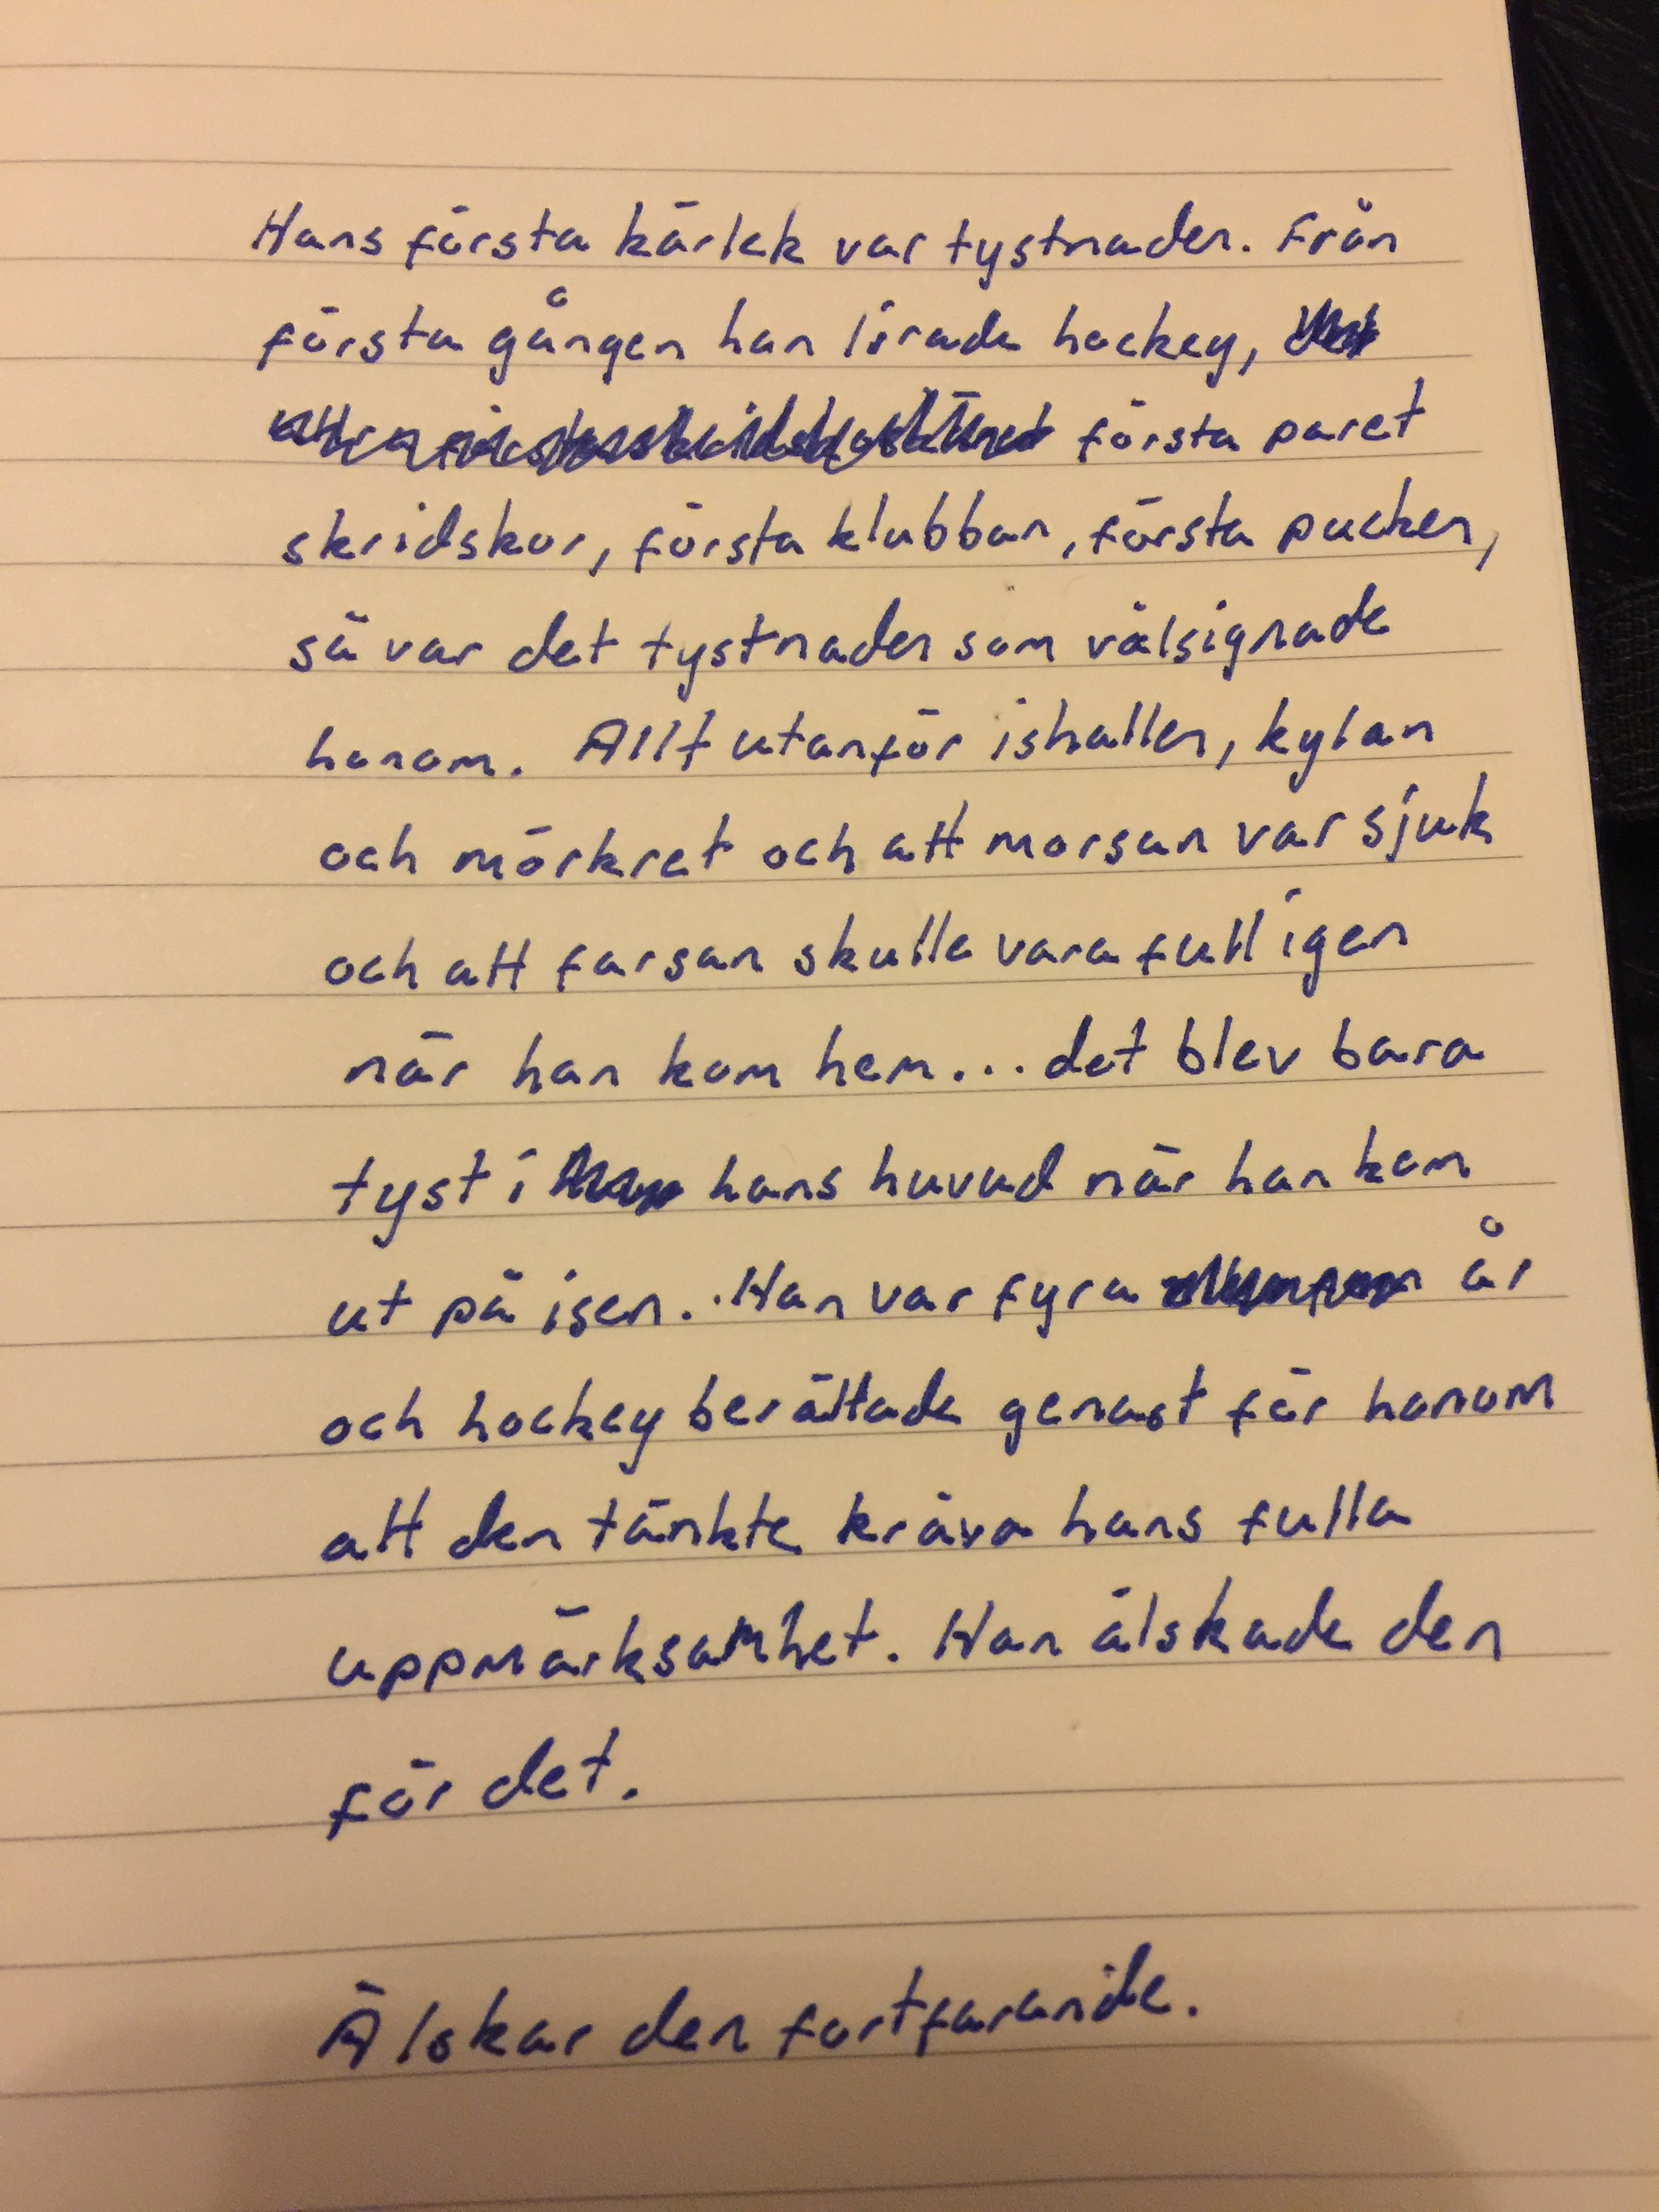 Hans första kärlek var tystnaden. Från
första gången han lirade hockey,
första paret
skridskor, första klubban, första pucken,
så var det tystnaden som välsignade
honom. Allt utanför ishallen, kylan
och mörkret och att morsan var sjuk
och att farsan skulle vara full igen
när han kom hem... det blev bara
tyst i hans huvud när han kom
ut på isen. Han var fyra år
och hockey berättade genast för honom
att den tänkte kräva hans fulla
uppmärksamhet. Han älskade den
för det.
Älskar den fortfarande.